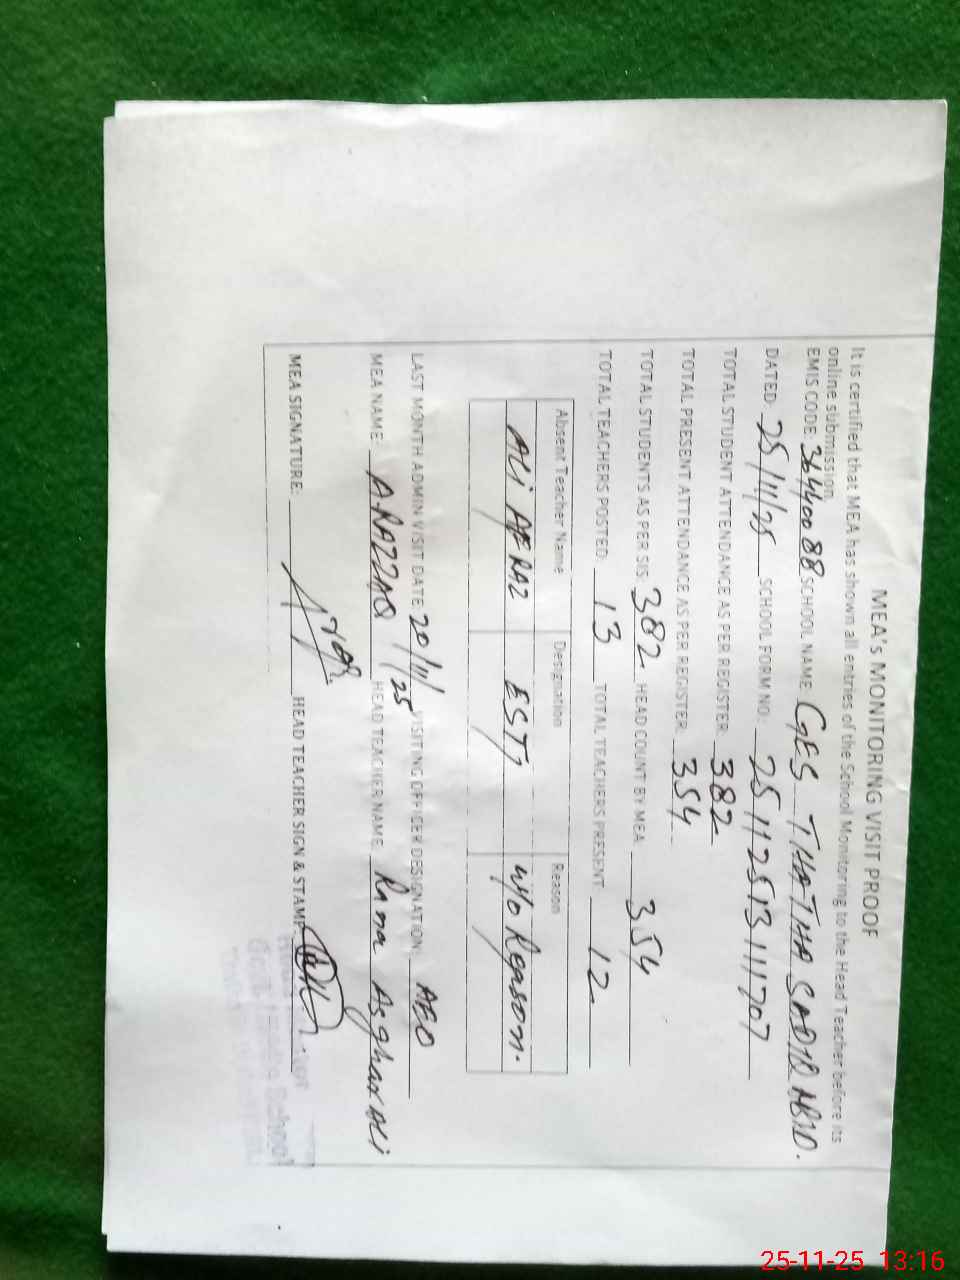 MEA's MONITORING VISIT PROOF
It is certified that MEA has shown all entries of the School Monitoring to the Head Teacher before its
online submission.
EMIS CODE 36440088 SCHOOL NAME: GES THATHA SADIQ ABAD.
DATED: 25/11/25 SCHOOL FORM NO: 25112513111707
TOTAL STUDENT ATTENDANCE AS PER REGISTER: 382
TOTAL PRESENT ATTENDANCE AS PER REGISTER: 354
TOTAL STUDENTS AS PER SIS: 382 HEAD COUNT BY MEA 354
TOTAL TEACHERS POSTED: 13 TOTAL TEACHERS PRESENT: 12
Absent Teacher Name Designation Reason
Ali AFRAZ EST, w/o Reason.
LAST MONTH ADMIN VISIT DATE: 20/11/25 VISITING OFFICER DESIGNATION: AEO
MEA NAME: A.RAZZAQ HEAD TEACHER NAME: Rana Asghar Ali
MEA SIGNATURE: HEAD TEACHER SIGN & STAMP
School
25-11-25 13:16